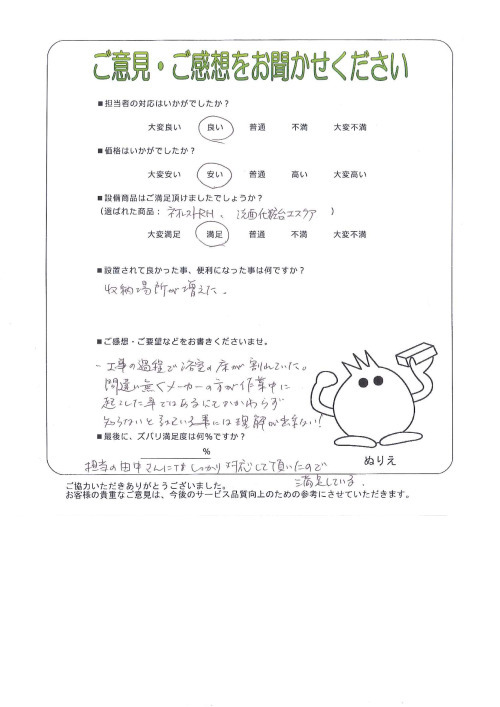 ご意見・ご感想をお聞かせください
■担当者の対応はいかがでしたか？
大変良い 良い 普通 不満 大変不満
■価格はいかがでしたか？
大変安い 安い 普通 高い 大変高い
■設備商品はご満足頂けましたでしょうか？
(選ばれた商品： ネオレストRH、洗面化粧台エスクア )
大変満足 満足 普通 不満 大変不満
■設置されて良かった事、便利になった事は何ですか？
収納場所が増えた。
■ご感想・ご要望などをお書きくださいませ。
工事の過程で浴室の床が割れていた。
間違い無くメーカーの方が作業中に
起こした事ではあるにもかかわらず
知らないと言っている事には理解が出来ない!
■最後に、ズバリ満足度は何％ですか？
％
担当の田中さんにはしっかり対応して頂いたので
満足している。
ぬりえ
ご協力いただきありがとうございました。
お客様の貴重なご意見は、今後のサービス品質向上のための参考にさせていただきます。